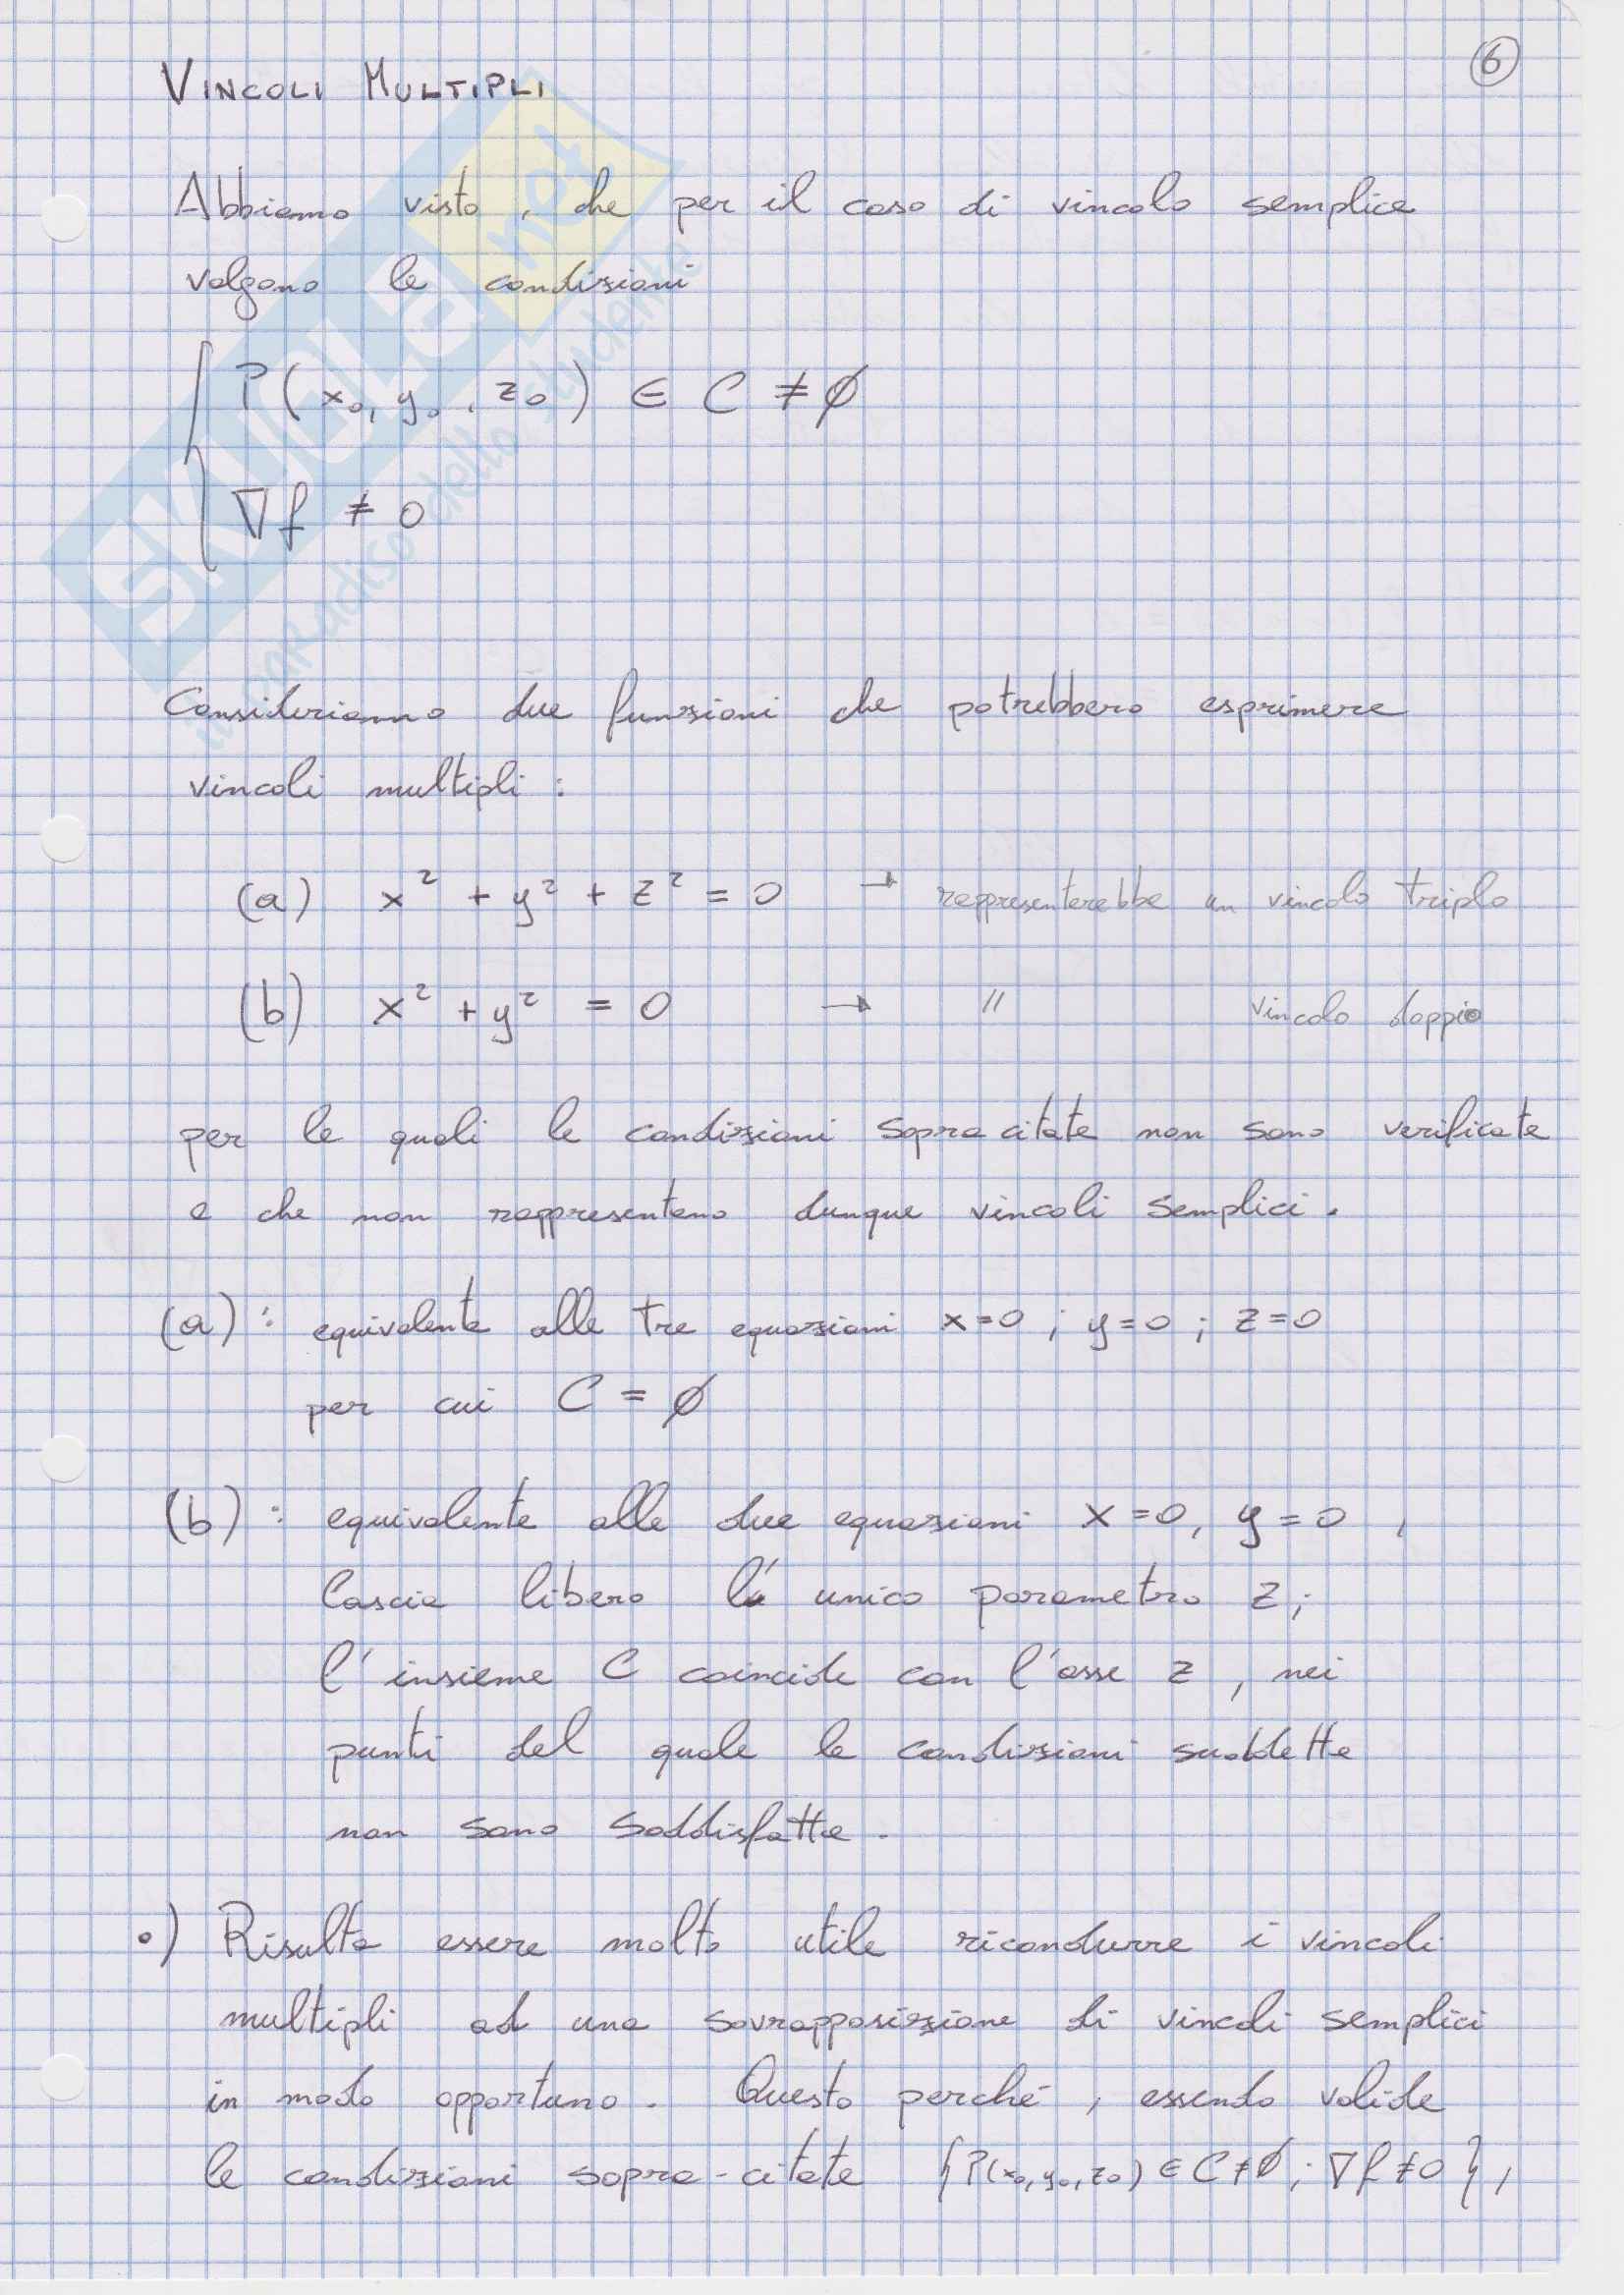 6
VINCOLI MULTIPLI
Abbiamo visto, che per il caso di vincolo semplice
valgono le condizioni
P(x₀, y₀, z₀) ∈ C ≠ ∅
∇f ≠ 0
Consideriamo due funzioni che potrebbero esprimere
vincoli multipli :
(a) x² + y² + z² = 0 → rappresenterebbe un vincolo triplo
(b) x² + y² = 0 → " vincolo doppio
per le quali le condizioni sopra citate non sono verificate
e che non rappresentano dunque vincoli semplici.
(a) : equivalente alle tre equazioni x=0 ; y=0 ; z=0
per cui C = ∅
(b) : equivalente alle due equazioni x=0, y=0 ,
lascia libero l' unico parametro z;
l'insieme C coincide con l'asse z, nei
punti del quale le condizioni suddette
non sono soddisfatte.
•) Risulta essere molto utile ricondurre i vincoli
multipli ad una sovrapposizione di vincoli semplici
in modo opportuno. Questo perché, essendo valide
le condizioni sopra-citate {P(x₀,y₀,z₀) ∈ C≠∅ ; ∇f≠0},
SKUOLA.net
il paradiso dello studente